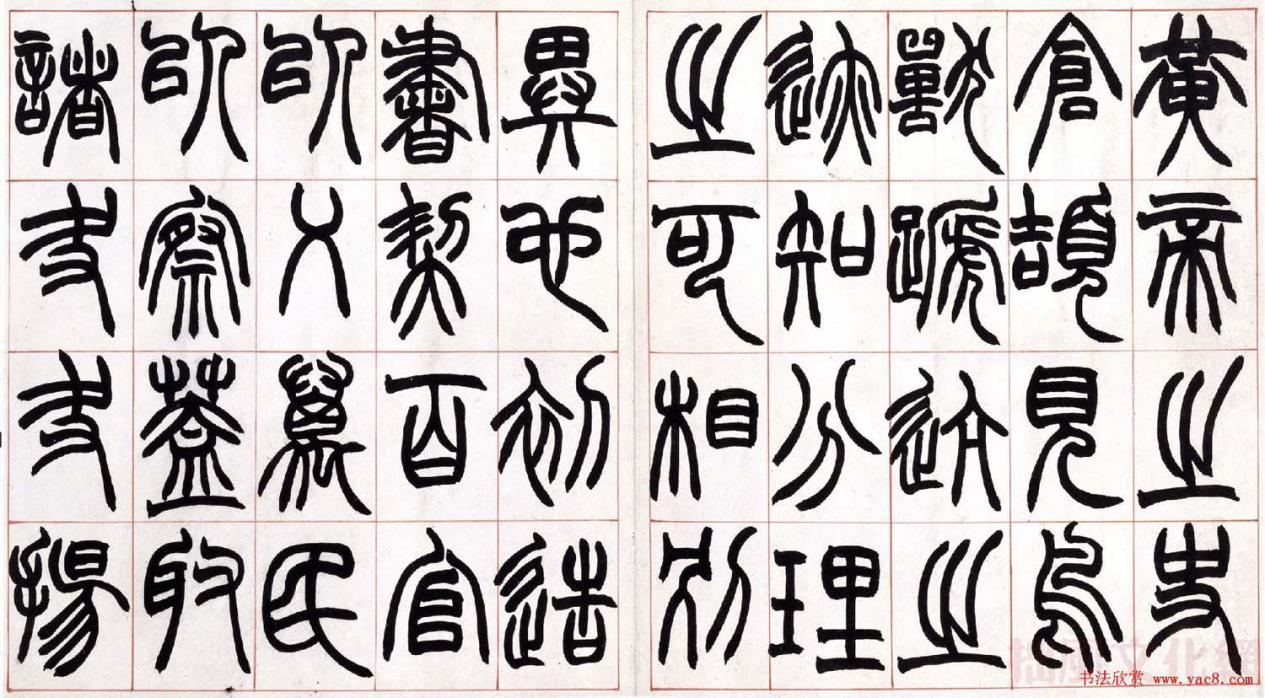 黃帝之史
倉頡見鳥
獸蹏迒之
迹知分理
之可相別
異也初造
書契百官
以乂萬民
以察蓋取
諸夬夬揚
书法欣赏 www.yac8.com